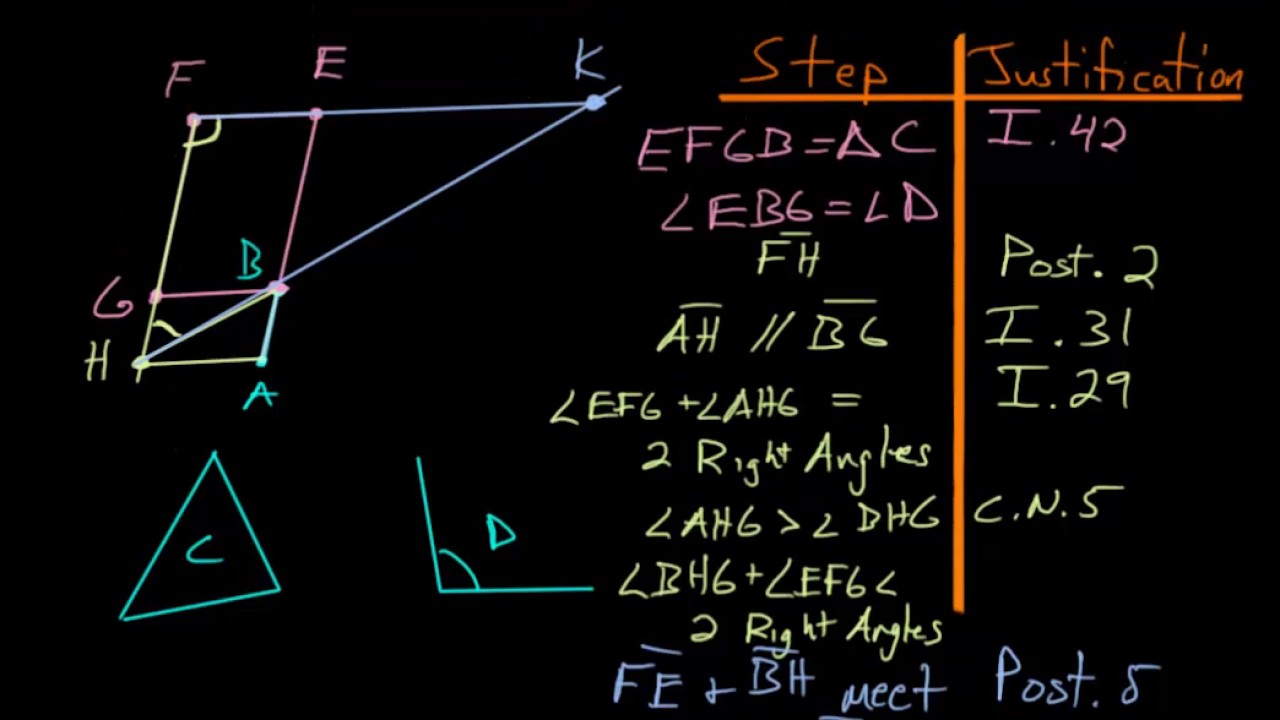 F E K
Step Justification
EFGB = △C I.42
∠EBG = ∠D
FH Post. 2
B
G
AH // BG I.31
H
A
∠EFG + ∠AHG = I.29
2 Right Angles
∠AHG > ∠BHG C.N.5
C D
∠BHG + ∠EFG <
2 Right Angles
FE + BH meet Post. 5